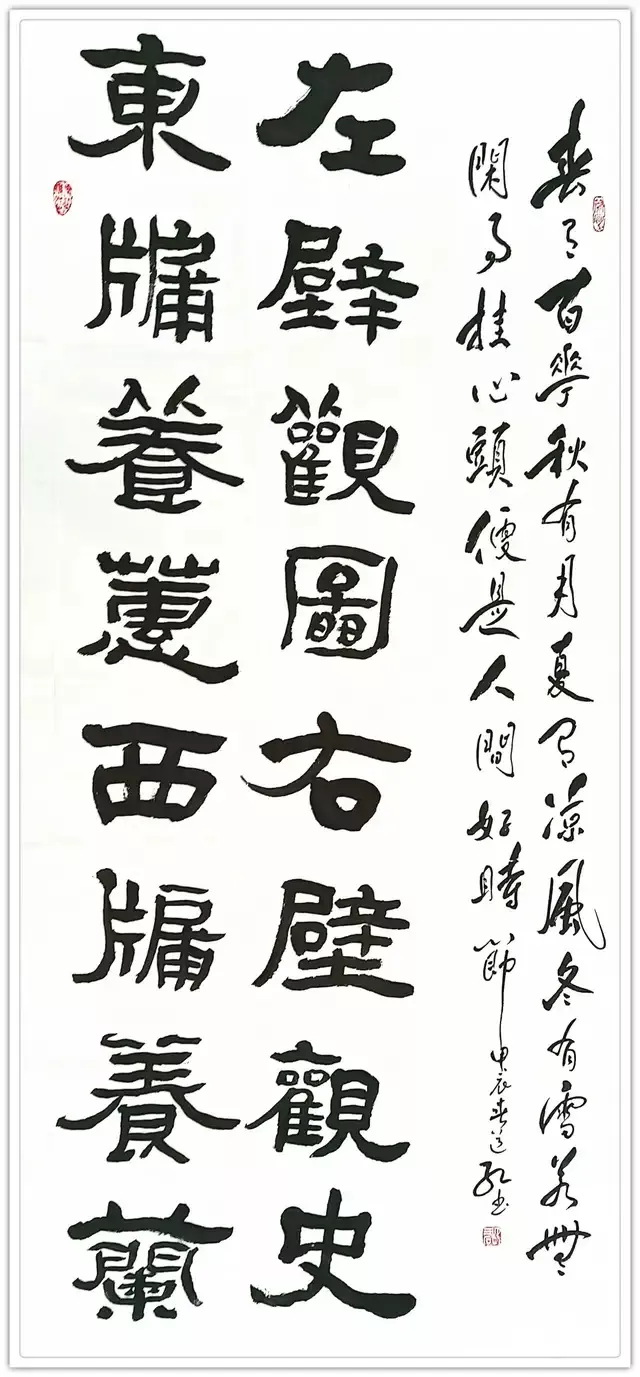 春有百花秋有月夏有涼風冬有雪若無
閑事挂心頭便是人間好時節 甲辰春 书
左壁觀圖右壁觀史
東牖養蕙西牖養蘭